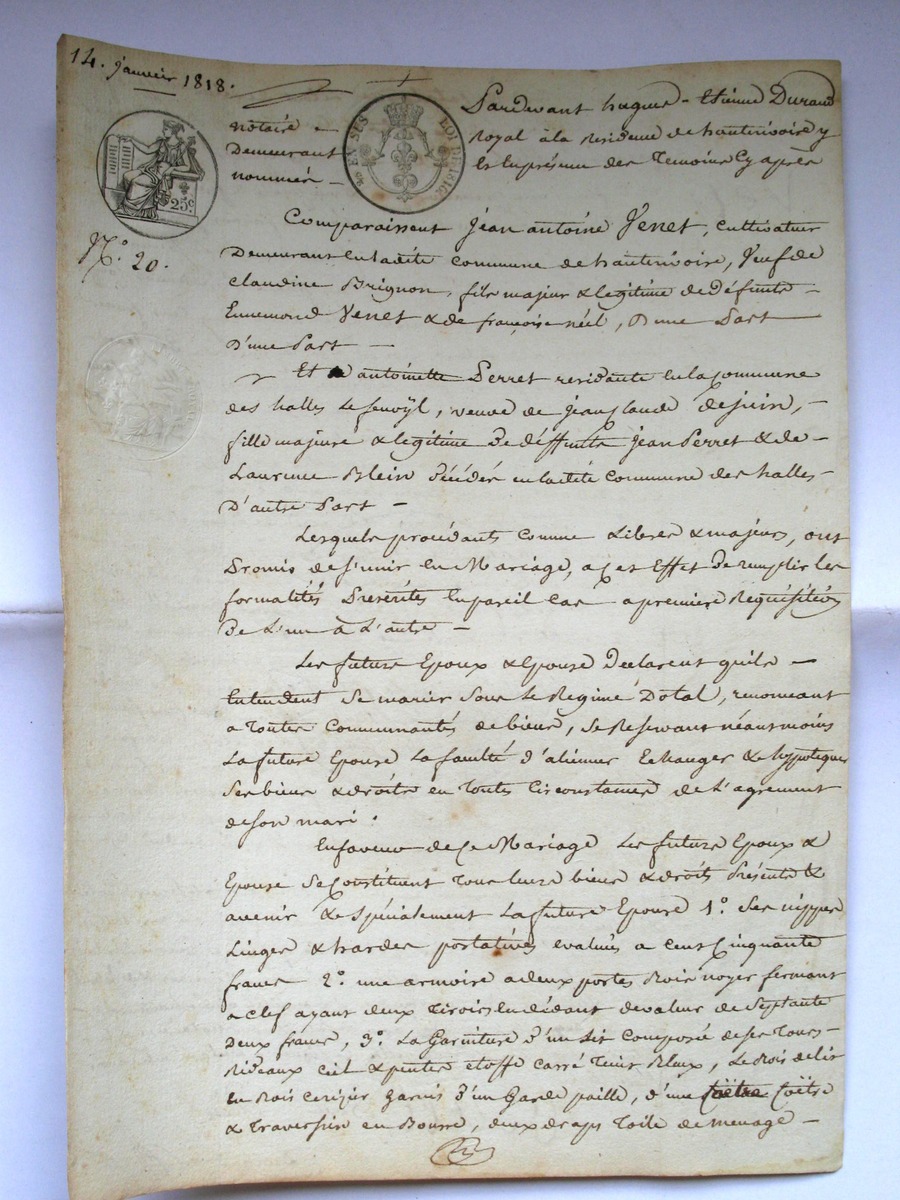 14. janvier 1818.
Pardevant hugues-Etienne Durand
notaire Royal à la Residence de hauterivoire y
Demeurant Et En présence des Temoins Cy après
nommés -
25c
EN SUS
LOI DE 1816
N.° 20.
Comparaissent Jean antoine Venet, Cultivateur
Demeurant En ladite Commune de hauterivoire, Veuf de
Claudine Brignon, fils majeur & legitime de défunts -
Ennemond Venet & de françoise néel, D'une Part
D'une Part -
Et antoinette Perret residante En la Commune
des halles Le fenoÿl, veuve de Jean Claude dejuin, -
fille majeure & legitime De deffunts Jean Perret & de -
Laurence Blein décédés en ladité Commune des halles -
D'autre Part -
Lesquels procédants Comme Libres & majeurs, ont
Promis de S'unir En Mariage, a Cet Effet De remplir les
formalités Prescrites En pareil Cas a premiere Réquisition
De L'un à L'autre -
Les futurs Epoux & Epouse Declarent quils -
Entendent Se marier Sous Le Régime Dotal, renonceant
a Toutes Communautés de bieus, Se Reservant néantmoins
La future Epouse La faculté d'aliener Echanger & hypotequer
Ses bieus & droits en Toutes Circonstances de L'agrement
de Son mari.
En faveur de Ce Mariage Les futurs Epoux &
Epouse Se Constituent Tous leurs bieus & droits Présents &
avenir & Spécialement La future Epouse 1.° Ses nippes
Linges & hardes portatives evalués a Cent Cinquante
francs 2.° une armoire a deux portes Bois noyer fermant
a Clef ayant deux Tiroirs En dédant de valeur de Septante
Deux francs, 3.° La Garniture d'un Lit Composé de Ses Tours -
Rideaux Ciel & pentes etoffe Carré Teint Bleux, Le Bois de lit
En Bois Cerizier Garnis d'un Garde paille, d'une Coëtre Coëtre
& Traversin en Bourre, deux draps Toile de menage -